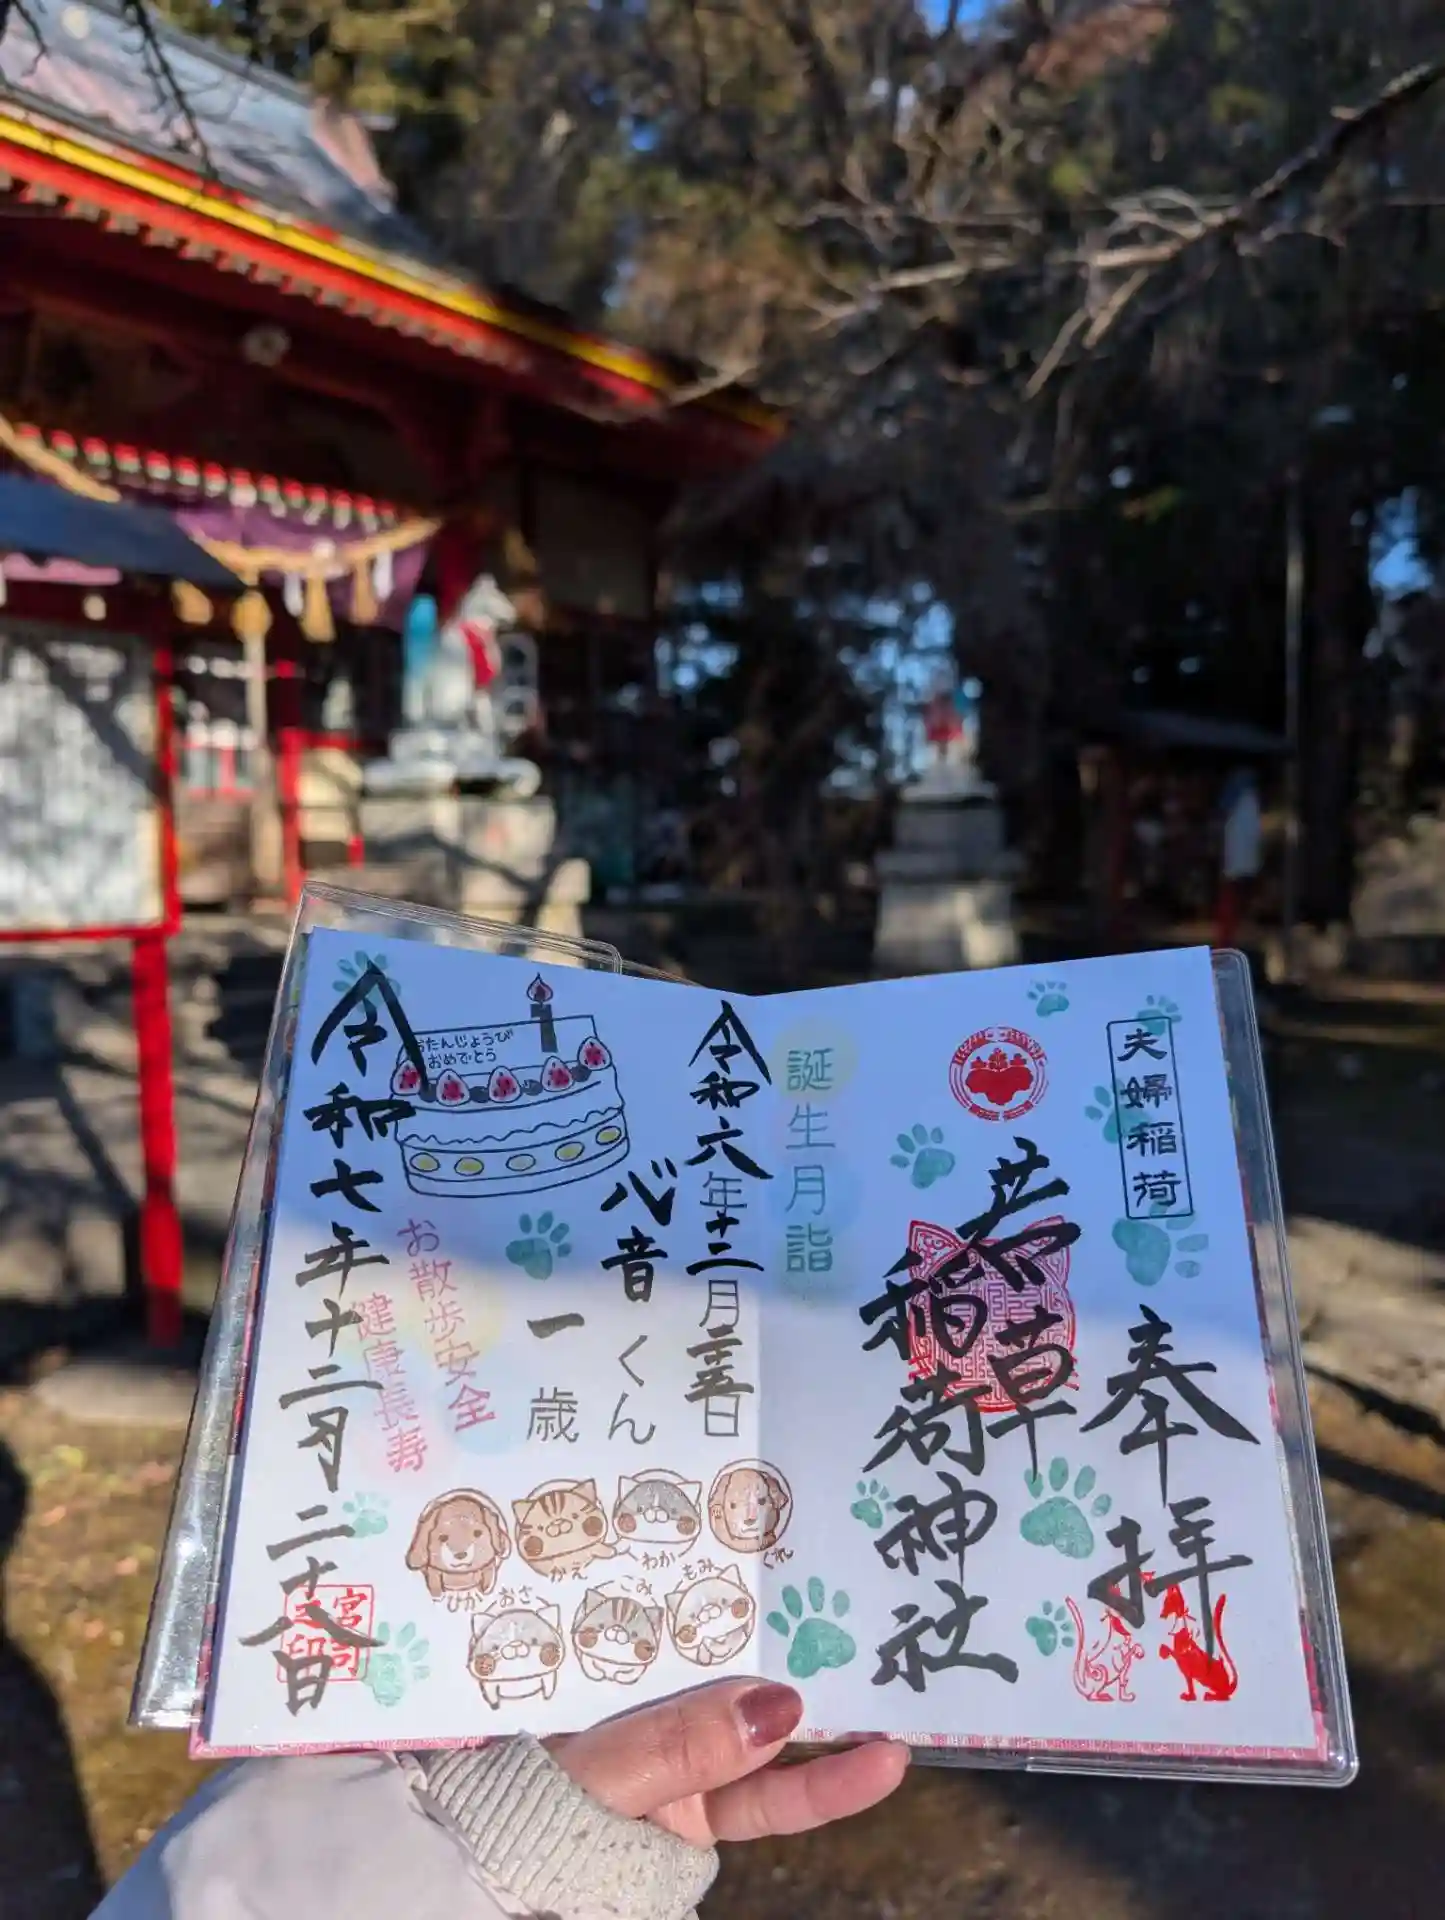 夫婦稲荷
奉拝
若草
稲荷神社
誕生月詣
令和六年十二月二十五日
心音くん
一歳
おたんじょうび
おめでとう
お散歩安全
健康長寿
令和七年十二月二十八日
宮司
之印
ひか
かえ
わか
くれ
おさ
こみ
もみ